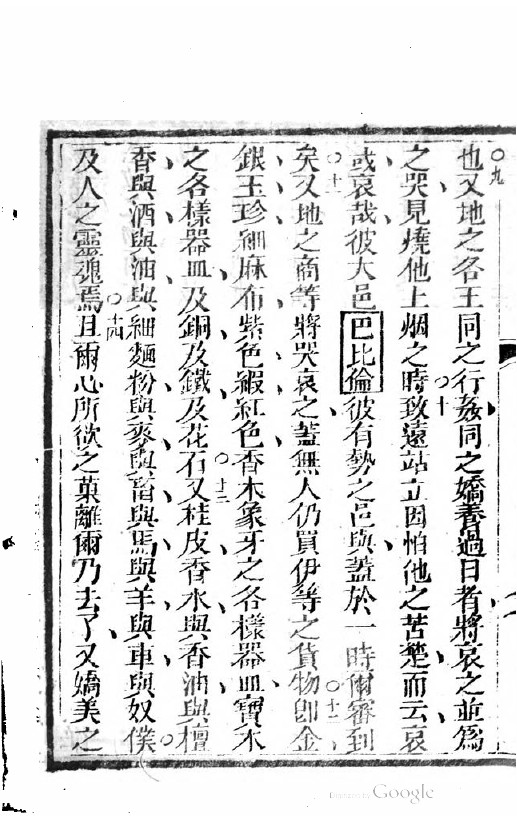 也○九又地之各王同之行姦同之嬌養過日者將哀之並爲
之哭見燒他上烟之時○十致遠站立因怕他之苦楚而云哀
或哀哉彼大邑巴比倫彼有勢之邑與蓋於一時爾審到
矣○十一又地之商等將哭哀之蓋無人仍買伊等之貨物○十二即金
銀玉珍細麻布紫色緞紅色香木象牙之各樣器皿寶木
之各樣器皿及銅及鐵及花石○十三又桂皮香水與香油與檀
香與酒與油與細麵粉與麥與畜與馬與羊與車與奴僕
及人之靈魂焉○十四且爾心所欲之菓離爾乃去了又嬌美之
Google